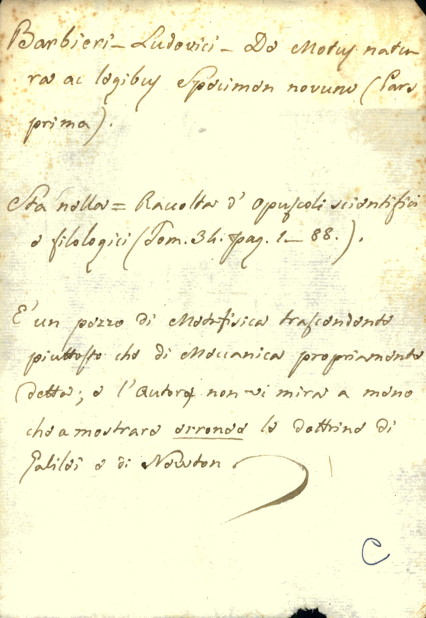 Barbieri - Ludovici - De Motus natu-
ra ac legibus Specimen novum (Pars
prima).
Sta nella = Raccolta d' opuscoli scientifici
e filologici (Tom. 34. pag. 1 - 88.).
E' un pezzo di Metafisica trascendente
piuttosto che di Meccanica propriamente
detta; e l'autore non vi mira a meno
che a mostrare erronee le dottrine di
Galilei e di Newton
C